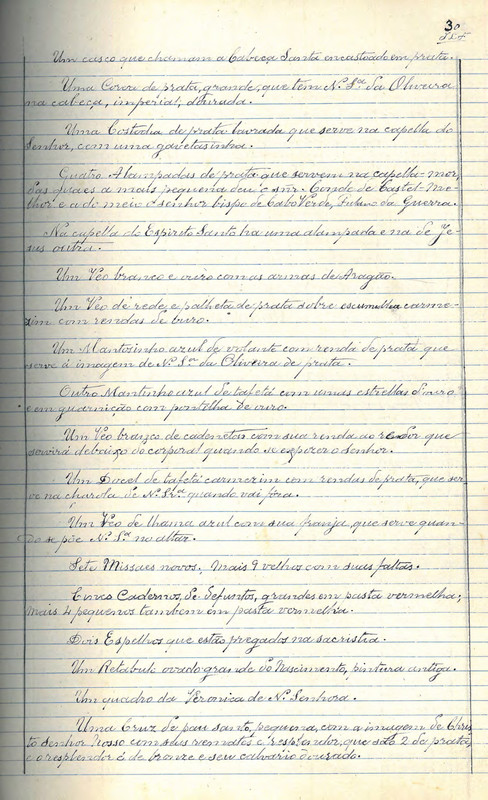 30
Um casco que chamam a Cabeça Santa encastoado em prata.
Uma Coroa de prata, grande, que tem N.ª S.ª da Oliveira
na cabeça, imperial, dourada.
Uma Costodia de prata lavrada que serve na capella do
Senhor, com uma gavetasinha.
Quatro Alampadas de prata que servem na capella-mor,
das quaes a mais pequena deu o snr. Conde de Castel-Me-
lhor e a do meio o senhor bispo de Cabo Verde, Fulano da Guerra.
Na capella do Espirito Santo ha uma alampada e na de Je-
sus outra.
Um Véo branco e ouro com as armas de Aragão.
Um Véo de rede e palheta de prata sobre escumilha carme-
sim com rendas de ouro.
Um Mantosinho azul de volante com renda de prata que
serve á imagem de N.ª S.ra da Oliveira de prata.
Outro Mantinho azul de tafetá com umas estrellas d'ouro
e em guarnição com pontilha de ouro.
Um Véo branco de cadonetas com sua renda ao redor que
servirá debaixo do corporal quando se expozer o Senhor.
Um Docel de tafetá carmezim com rendas de prata, que ser-
ve na charola de N.ª Sr.ª quando vai fóra.
Um Véo de lhama azul com sua franja, que serve quan-
do se põe N.ª S.ra no altar.
Sete Missaes novos; Mais 9 velhos com suas faltas.
Cinco Cadernos de defuntos, grandes em pasta vermelha;
mais 4 pequenos tambem em pasta vermelha.
Dois Espelhos que estão pregados na sacristia.
Um Retabulo ovado grande do Nascimento, pintura antiga.
Um quadro da Veronica de N.ª Senhora.
Uma Cruz de pau santo, pequena, com a imagem de Chris-
to Senhor Nosso com seus remates e resplendor, que são 2 de prata,
e o resplendor é de bronze e seu calvario dourado.